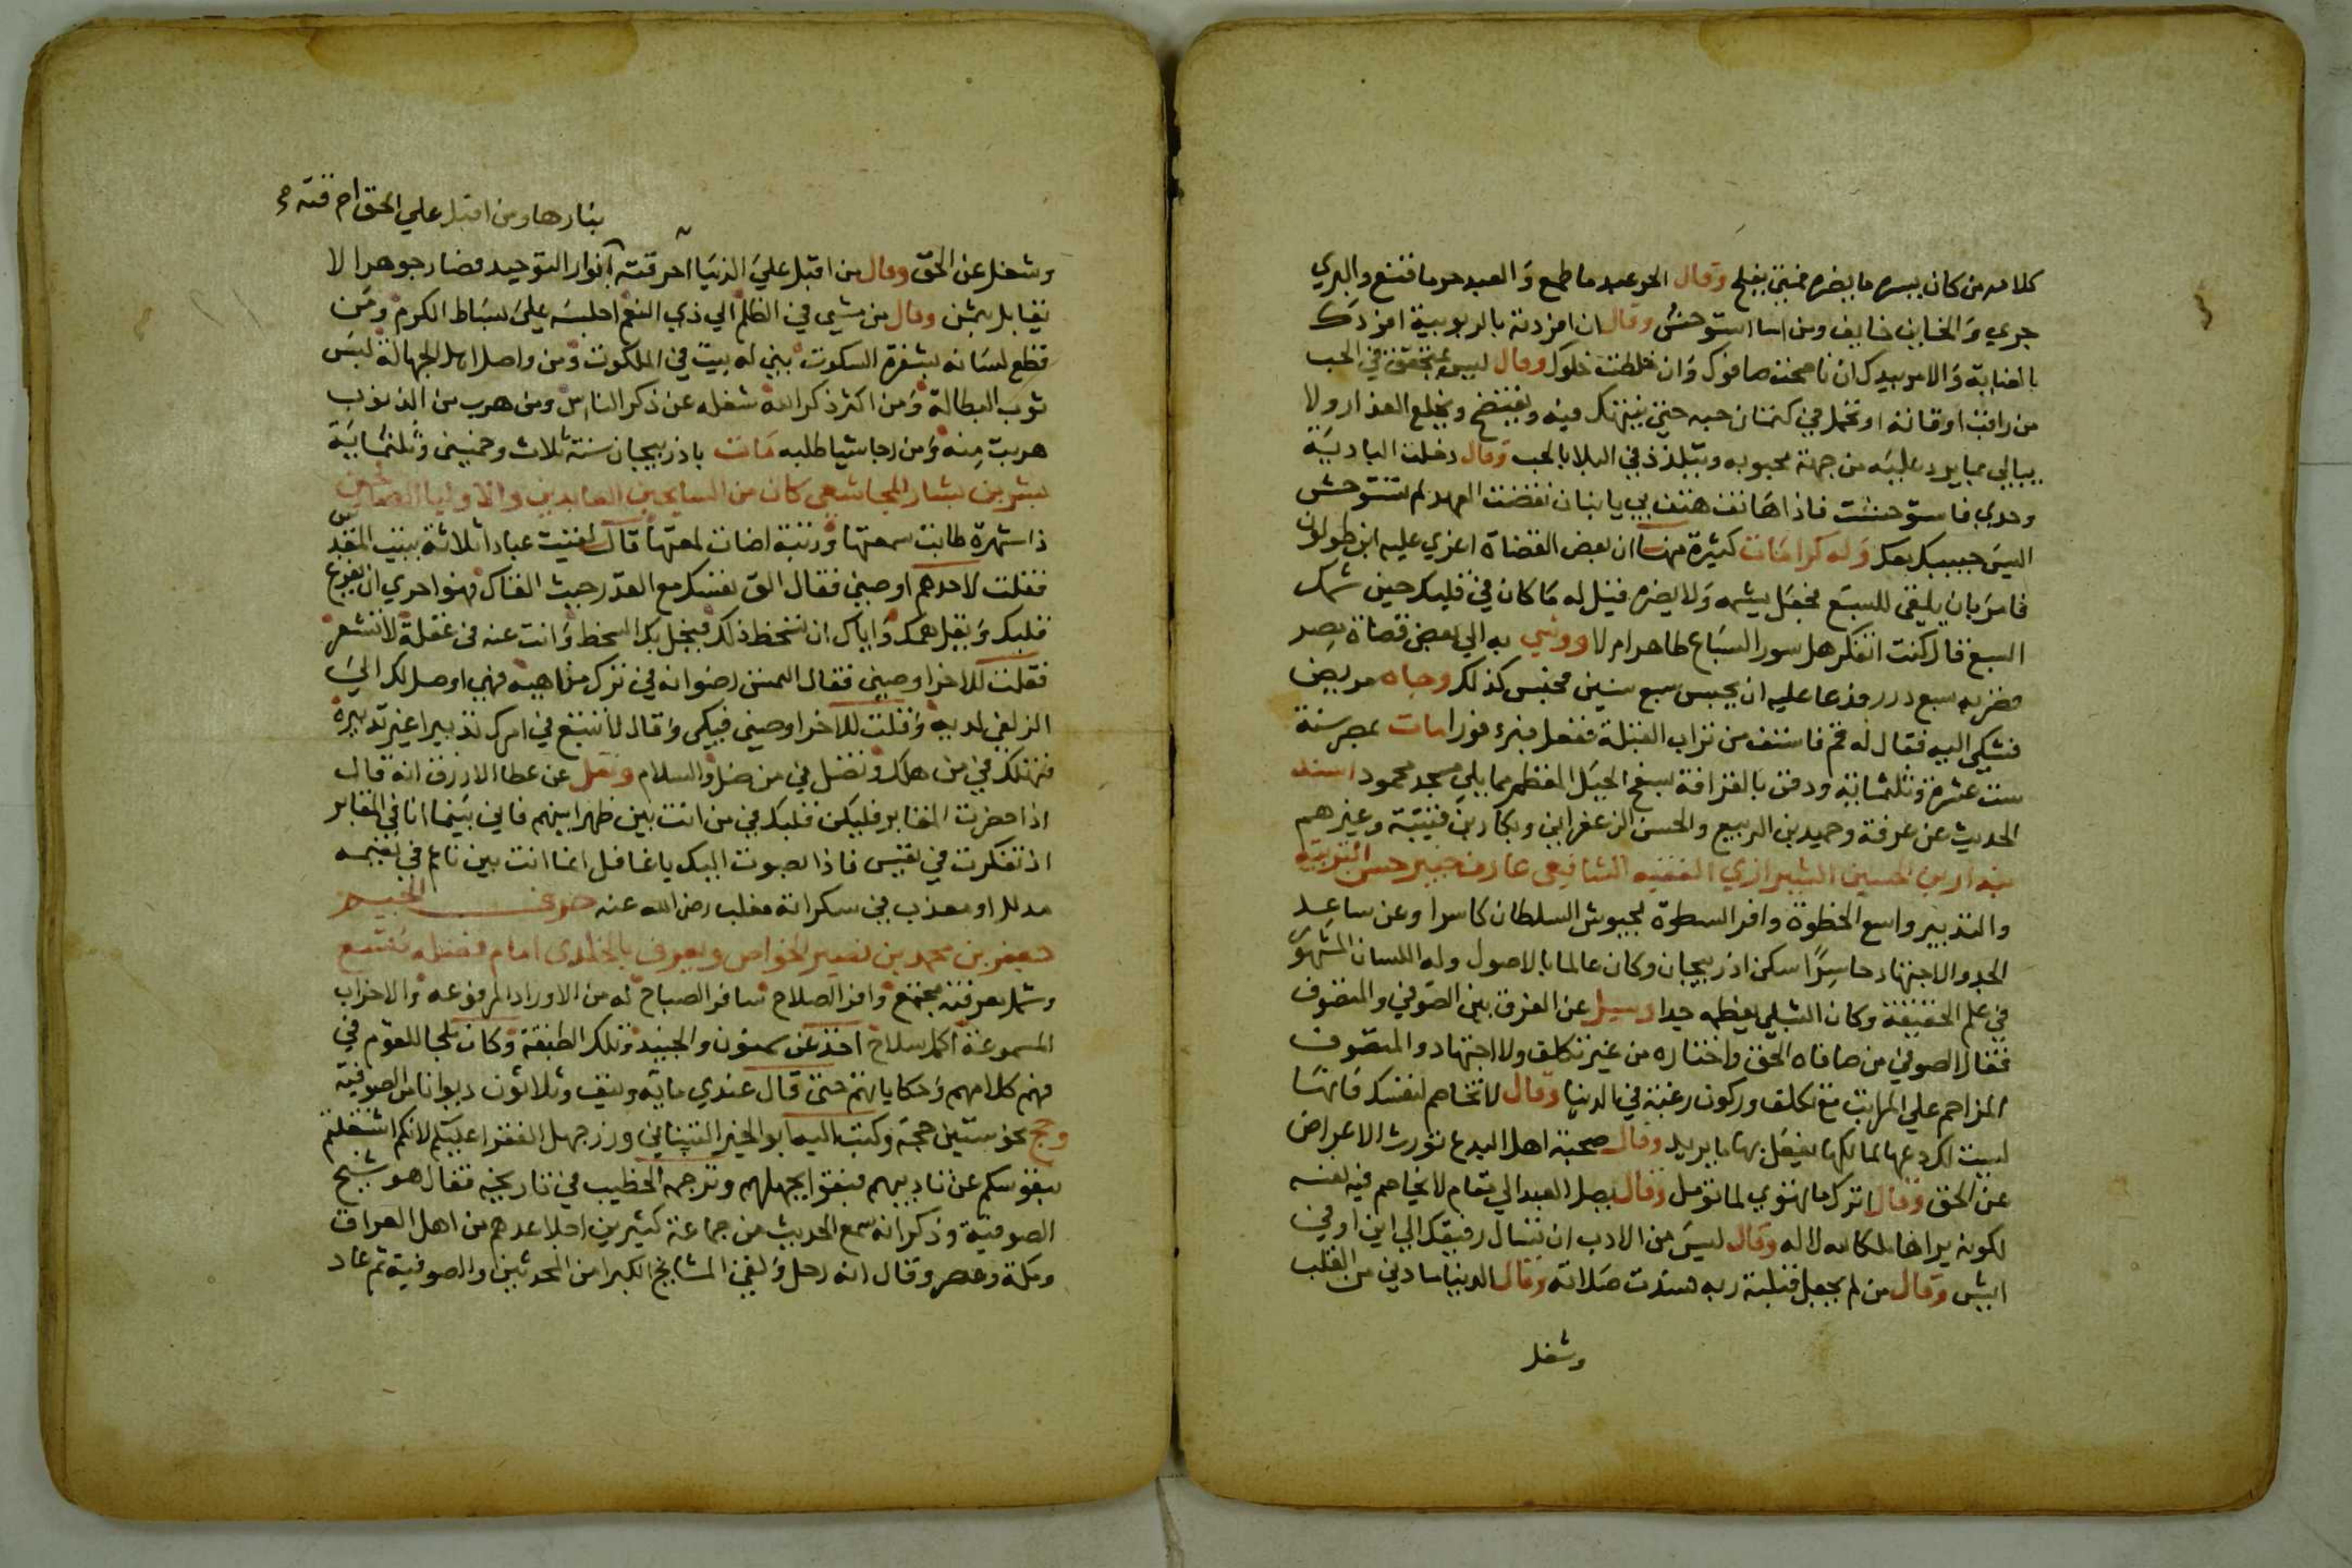 كلامه من كان يسره ما يضره فمتى يفلح وقال الحر عبد ما طمع والعبد حر ما قنع والبري
جري والخاين خايف ومن اسا استوحش وقال ان افردته بالربوبية افردك
بالعناية والامر بيدك ان ناصحت صافوك وان خلطت خلوك وقال ليس بمتحقق في الحب
من راقب اوقاته او تحمل في كتمان حبه حتى ينهتك فيه ويفتضح ويخلع العذار ولا
يبالي بما يرد عليه من جهة محبوبه ويتلذذ في البلا بالحب وقال دخلت البادية
وحدي فاستوحشت فاذا هاتف هتف بي يا بنان نقضت العهد لم تستوحش
اليس حبيبك معك وله كرامات كثيرة منها ان بعض القضاة اغري عليه ابن طولون
فامر بان يلقى للسبع فجعل يشمه ولا يضره فقيل له ما كان في قلبك حين شمك
السبع قال كنت اتفكر هل سور السباع طاهر ام لا ووشي به الي بعض قضاة مصر
فضربه سبع درر فدعا عليه ان يحبس سبع سنين فحبس كذلك وجاه مريض
فشكى اليه فقال له قم فاستف من تراب القبلة ففعل فبرء فورا مات بمصر سنة
ست عشرة وثلثماية ودفن بالقرافة بسفح الجبل المقطم مما يلي مسجد محمود اسند
الحديث عن عرفة وحميد بن الربيع والحسن الزعفراني وبكار بن قتيبة وغيرهم
بندار بن الحسين الشيرازي الفقيه الشافعي عارف خبير حسن التربية
والتدبير واسع الخطوة وافر السطوة لجيوش السلطان كاسرا وعن ساعد
الجد والاجتهاد حاسرا سكن اذربيجان وكان عالما بالاصول وله اللسان المشهور
في علم الحقيقة وكان الشبلي يعظمه جدا وسيل عن الفرق بين الصوفي والمتصوف
فقال الصوفي من صافاه الحق واختاره من غير تكلف ولا اجتهاد والمتصوف
المزاحم علي المراتب مع تكلف وركون رغبة في الدنيا وقال لا تخاصم لنفسك فانها
ليست لك دعها لمالكها يفعل بها ما يريد وقال صحبة اهل البدع تورث الاعراض
عن الحق وقال اترك ما تهوي لما تومل وقال يصل العبد الي مقام لا يخاصم فيه لنفسه
لكونه يراها ملكا لله لا له وقال ليس من الادب ان تسال رفيقك الي اين او في
ايش وقال من لم يجعل قبلته ربه فسدت صلاته وقال الدنيا ما دنى من القلب
وشغل
بنارها ومن اقبل علي الحق احرقته
وشغل عن الحق وقال من اقبل علي الدنيا احرقته انوار التوحيد فصار جوهرا لا
يقابل بثمن وقال من مشي في الظلم الي ذي النعم اجلسه علي بساط الكرم ومن
قطع لسانه بشفرة السكوت بني له بيت في الملكوت ومن واصل اهل الجهالة لبس
ثوب البطالة ومن اكثر ذكر الله شغله عن ذكر الناس ومن هرب من الذنوب
هربت منه ومن رجا شيا طلبه مات باذربيجان سنة ثلاث وخمسين وثلثماية
بشر بن بشار المجاشعي كان من السايحين العابدين والاوليا الصالحين
ذا شهرة طابت سمعتها ورتبة اضات لمعتها قال لقيت عبادا ثلاثة ببيت المقدس
فقلت لاحدهم اوصني فقال الق نفسك مع القدر حيث القاك فهو احري ان يفرغ
قلبك ويقل همك واياك ان تسخط ذلك فيحل بك السخط وانت عنه في غفلة لا تشعر
فقلت للاخر اوصني فقال التمس رضوانه في ترك مناهيه فهي اوصل لك الي
الزلفي لديه وقلت للاخر اوصني فبكى وقال لا تبتغ في امرك تدبيرا غير تدبيره
فتهلك في من هلك وتضل في من ضل والسلام ونقل عن عطا الازرق انه قال
اذا حضرت المقابر فليكن قلبك في من انت بين ظهرانيهم فاني بينما انا في المقابر
اذ تفكرت في نفسي فاذا بصوت اليك يا غافل انما انت بين ناعم في نعيمه
مدلل او معذب في سكراته مقلب رضي الله عنه حرف الجيم
جعفر بن محمد بن نصير الخواص ويعرف بالخلدي امام فضله مقنع
وشمل معرفته مجتمع وافر الصلاح سافر الصباح له من الاوراد المرفوعه والاحزاب
المسموعة اكمل سلاح اخذ عن سمنون والجنيد وتلك الطبقة وكان ملجا للقوم في
فهم كلامهم وحكاياتهم حتى قال عندي ماية ونيف وثلاثون ديوانا من الصوفية
وحج نحو ستين حجة وكتب اليه ابو الخير التيناتي وزر جهل الفقرا عليكم لانكم اشتغلتم
بنفوسكم عن تاديبهم فبقوا بجهلهم وترجمه الخطيب في تاريخه فقال هو شيخ
الصوفية وذكر انه سمع الحديث من جماعة كثيرين اجلا عدهم من اهل العراق
ومكة ومصر وقال انه رحل ولقي المشايخ الكبرا من المحدثين والصوفية ثم عاد